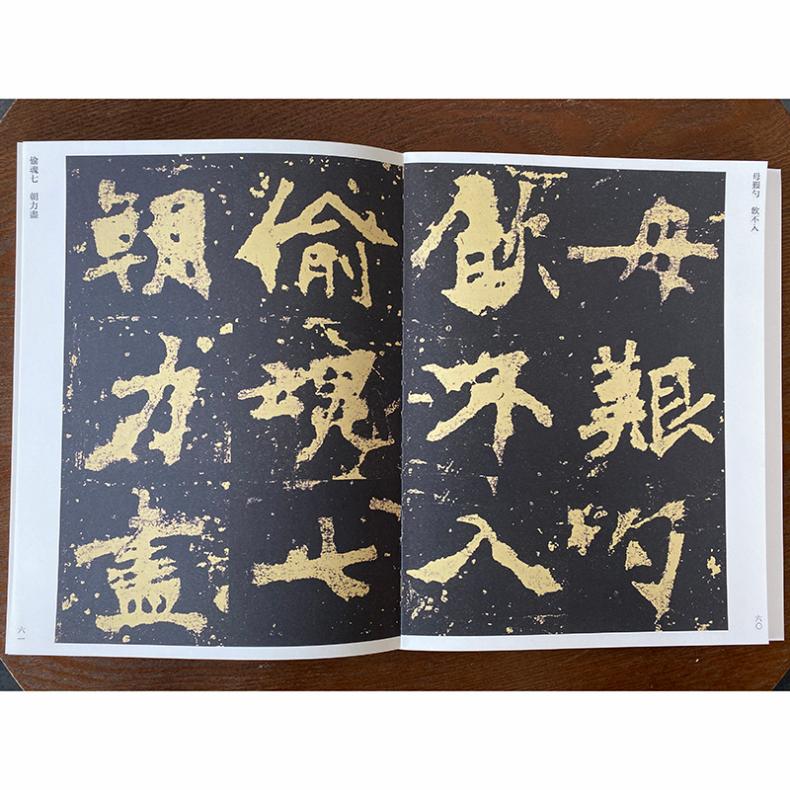 母艱勺　飲不入
母艱勺
飲不入
六〇
偷魂七
朝力盡
偷魂七　朝力盡
六一